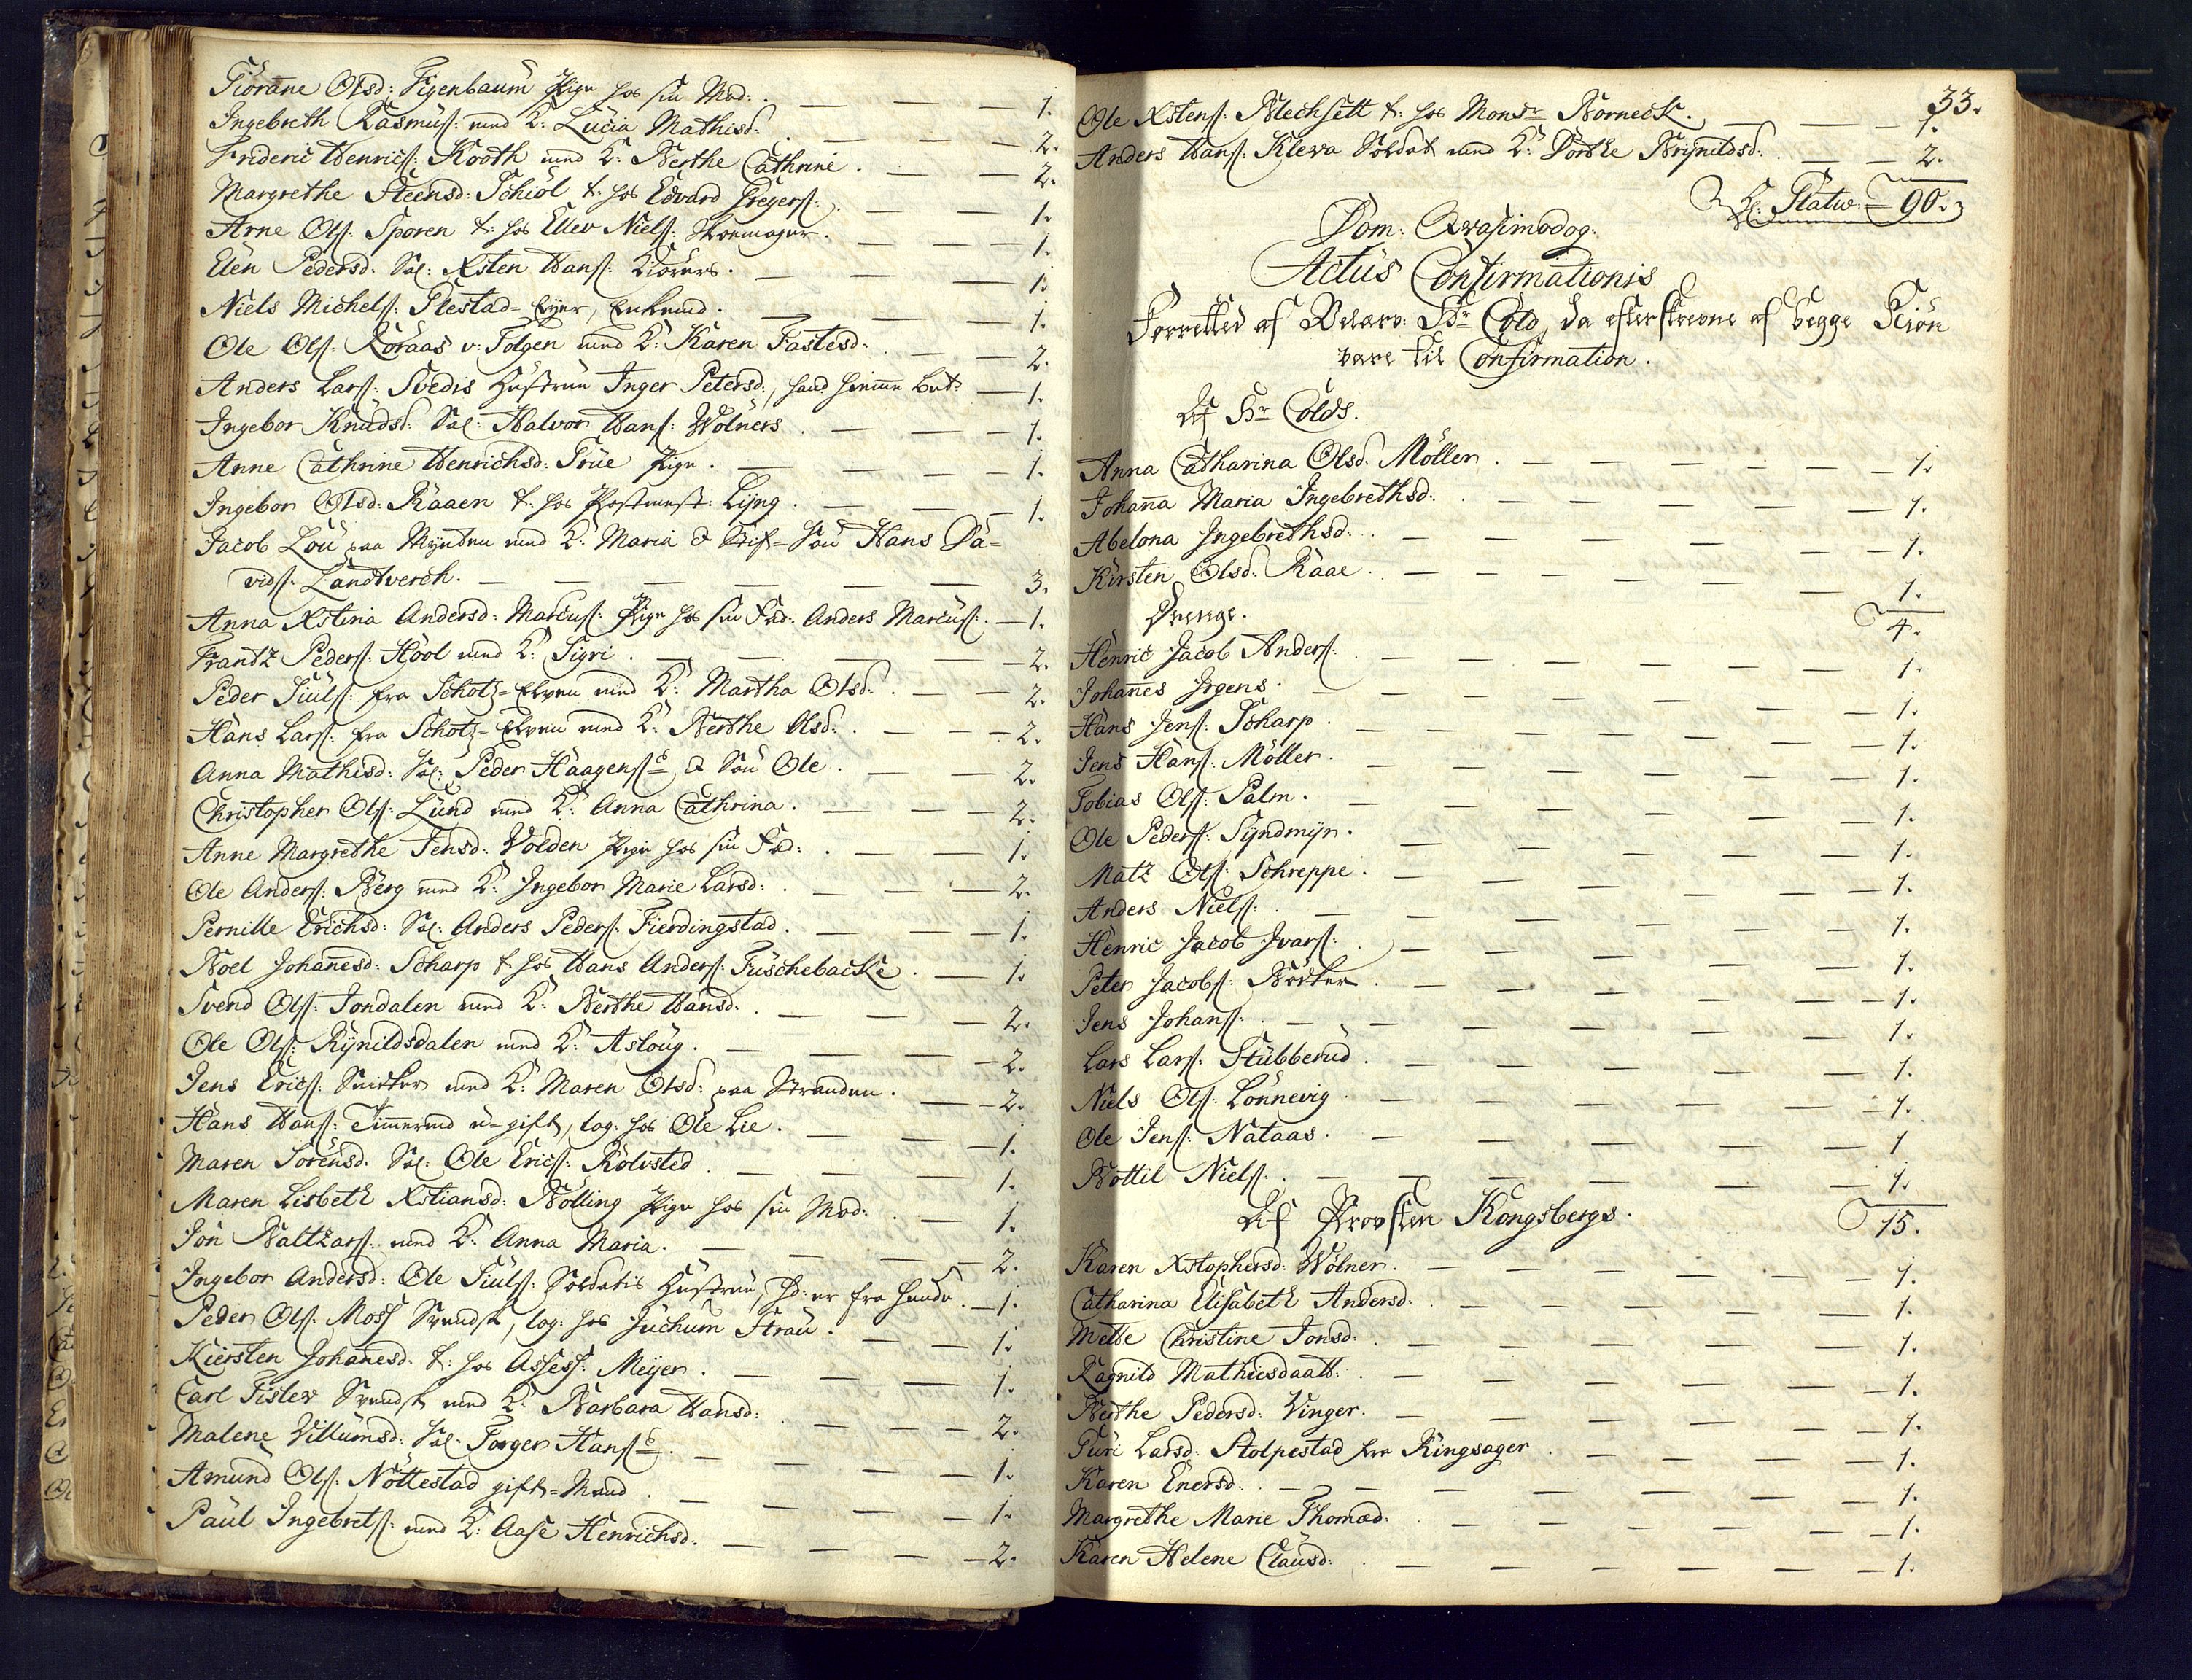 Giorane Olsd: Figenbaum Pige hos sin Mod: . — — — 1.
Ingebreth Rasmus: med K: Lucia Mathisd: . — — 2.
Frideric Henrics: Kooth med K: Berthe Cathrine . — — 2.
Margrethe Steensd: Schiöl t: hos Edvard Gregers: . — — 1.
Arne Ols: Sporen t: hos Ellev Niels: Skomager . — — 1.
Elen Pedersd: Sal: Xsten Hans: . — — 1.
Niels Michels: Plestad= Eyer, Enkemd . — — 1.
Ole Ols: Röraas v: Tolgen med K: Karen Fastesd: . — — 2.
Anders Lars: Svedis Hustrue Inger Petersd:, — 1.
Ingebor Knudsd: Sal: Halvor Hans: Wölners . — — — 1.
Anne Cathrine Henrichsd: True Pige . — — — 1.
Ingebor Olsd: Raaen t: hos Postmest: Lyng . — — — 1.
Jacob Lou paa Mynten med K: Maria & Stif=Søn Hans Da=
vids: Landtverch . — — — — — — 3.
Anna Xstina Andersd: Marcus: Pige hos sin Fad: Anders Marcus: . — 1.
Frantz Peders: Hool med K: Sigri . — — — — 2.
Peder Siuls: fra Schotz=Elven med K: Martha Olsd: . — — 2.
Hans Lars: fra Schotz=Elven med K: Berthe Olsd: . — — 2.
Anna Mathisd: Sal: Peder Haagens: & Søn Ole . — — 2.
Christopher Ols: Lund med K: Anna Cathrina . — — 2.
Anne Margrethe Jensd: Volden Pige hos sin Fad: . — — 1.
Ole Anders: Berg med K: Ingebor Marie Larsd: . — — 2.
Pernille Erichsd: Sal: Anders Peders: Fierdingstad . — — 1.
Boel Johanesd: Scharp t: hos Hans Anders: Fuschebacke . — 1.
Svend Ols: Jondalen med K: Berthe Hansd: . — — — 2.
Ole Ols: Rynildsdalen med K: Asloug . — — — 2.
Jens Erics: Snicker med K: Maren Olsd: paa Stranden . — — 2.
Hans Hans: Timermd u=gift, log: hos Ole Lie . — — — 1.
Maren Sorensd: Sal: Ole Erics: Rolvsted . — — — 1.
Maren Lisbeth Xstiansd: Bölling Pige hos sin Mod: . — 1.
Jon Baltzars: med K: Anna Maria . — — — — 2.
Ingebor Andersd: Ole Siuls: Soldatis Hustrue, hd: er fra hende . — 1.
Peder Ols: Moss Svendsk, log: hos Juchum Strau . — — 1.
Kiersten Johanesd: t: hos Assess: Meyer . — — — 1.
Carl Fislev Svendsk med K: Barbara Hansd: . — — — 2.
Malene Villumsd: Sal: Torger Hans: . — — — 1.
Amund Ols: Nöttestad gift=Mand . — — — — 1.
Paul Ingebrets: med K: Aase Henrichsd: . — — — — 2.
33.
Ole Xstens: Blechsett t: hos Monsr Borneck . — — 1.
Anders Hans: Kleva Soldat med K: Dorthe Brynildsd: . — — 2.
Statu: = 90.
Dom: Qvasimodog:
Actus Confirmationis
Forretted af Velærv: Hr Cold, da efterskrevne af begge Kiön
vare til Confirmation .
Af Hr Colds.
Anna Catharina Olsd: Möller . — — — — — 1.
Johana Maria Ingebrethsd: . — — — — — 1.
Abelona Ingebrethsd: . — — — — — 1.
Kirsten Olsd: Raae . — — — — — 1.
4.
Drenge.
Henric Jacob Anders: . — — — — — 1.
Johanes Irgens . — — — — — 1.
Hans Jens: Scharp . — — — — — 1.
Jens Hans: Möller . — — — — — 1.
Tobias Ols: Palm . — — — — — 1.
Ole Peders: Syndmyr . — — — — — 1.
Matz Ols: Schreppe . — — — — — 1.
Anders Niels: . — — — — — 1.
Henric Jacob Ivars: . — — — — — 1.
Peter Jacobs: Bödker . — — — — — 1.
Jens Johans: . — — — — — 1.
Lars Lars: Stubberud . — — — — — 1.
Niels Ols: Lönnevig . — — — — — 1.
Ole Jens: Nataas . — — — — — 1
Bottil Niels: . — — — — — 1.
15.
Af Provsten Kongsbergs .
Karen Xstophersd: Wölner . — — — — — 1.
Catharina Elisabeth Andersd: . — — — — — 1.
Mette Christine Jonsd: . — — — — — 1.
Ragnild Mathiesdaatt: . — — — — — 1.
Berthe Pedersd: Vinger . — — — — — 1.
Turi Larsd: Stolpestad fra Ringsager . — — — — 1.
Karen Enersd: . — — — — — 1.
Margrethe Marie Thomæd: . — — — — — 1.
Karen Helene Clausd: . — — — — — 1.